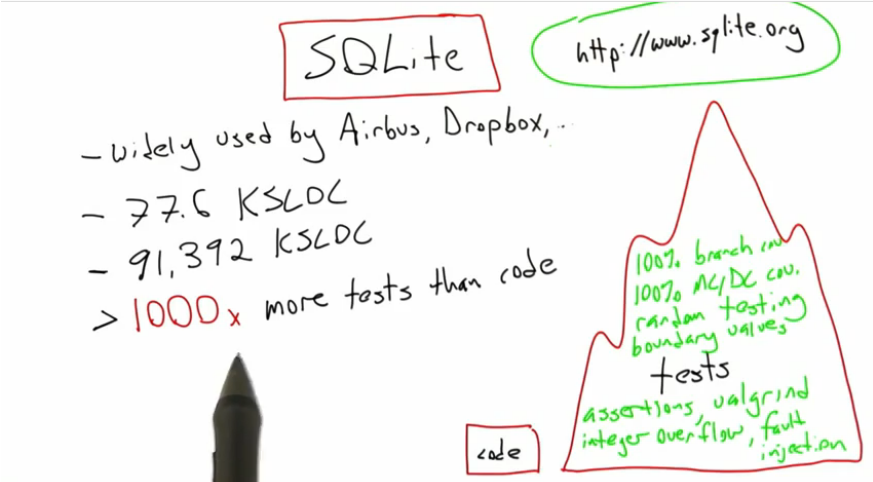 SQLite
http://www.sqlite.org
- widely used by Airbus, Dropbox, ...
- 77.6 KSLOC
- 91,392 KSLOC
> 1000x more tests than code
100% branch cov
100% MC/DC cov.
random testing
boundary values
tests
assertions, valgrind
integer overflow, fault
injection
code